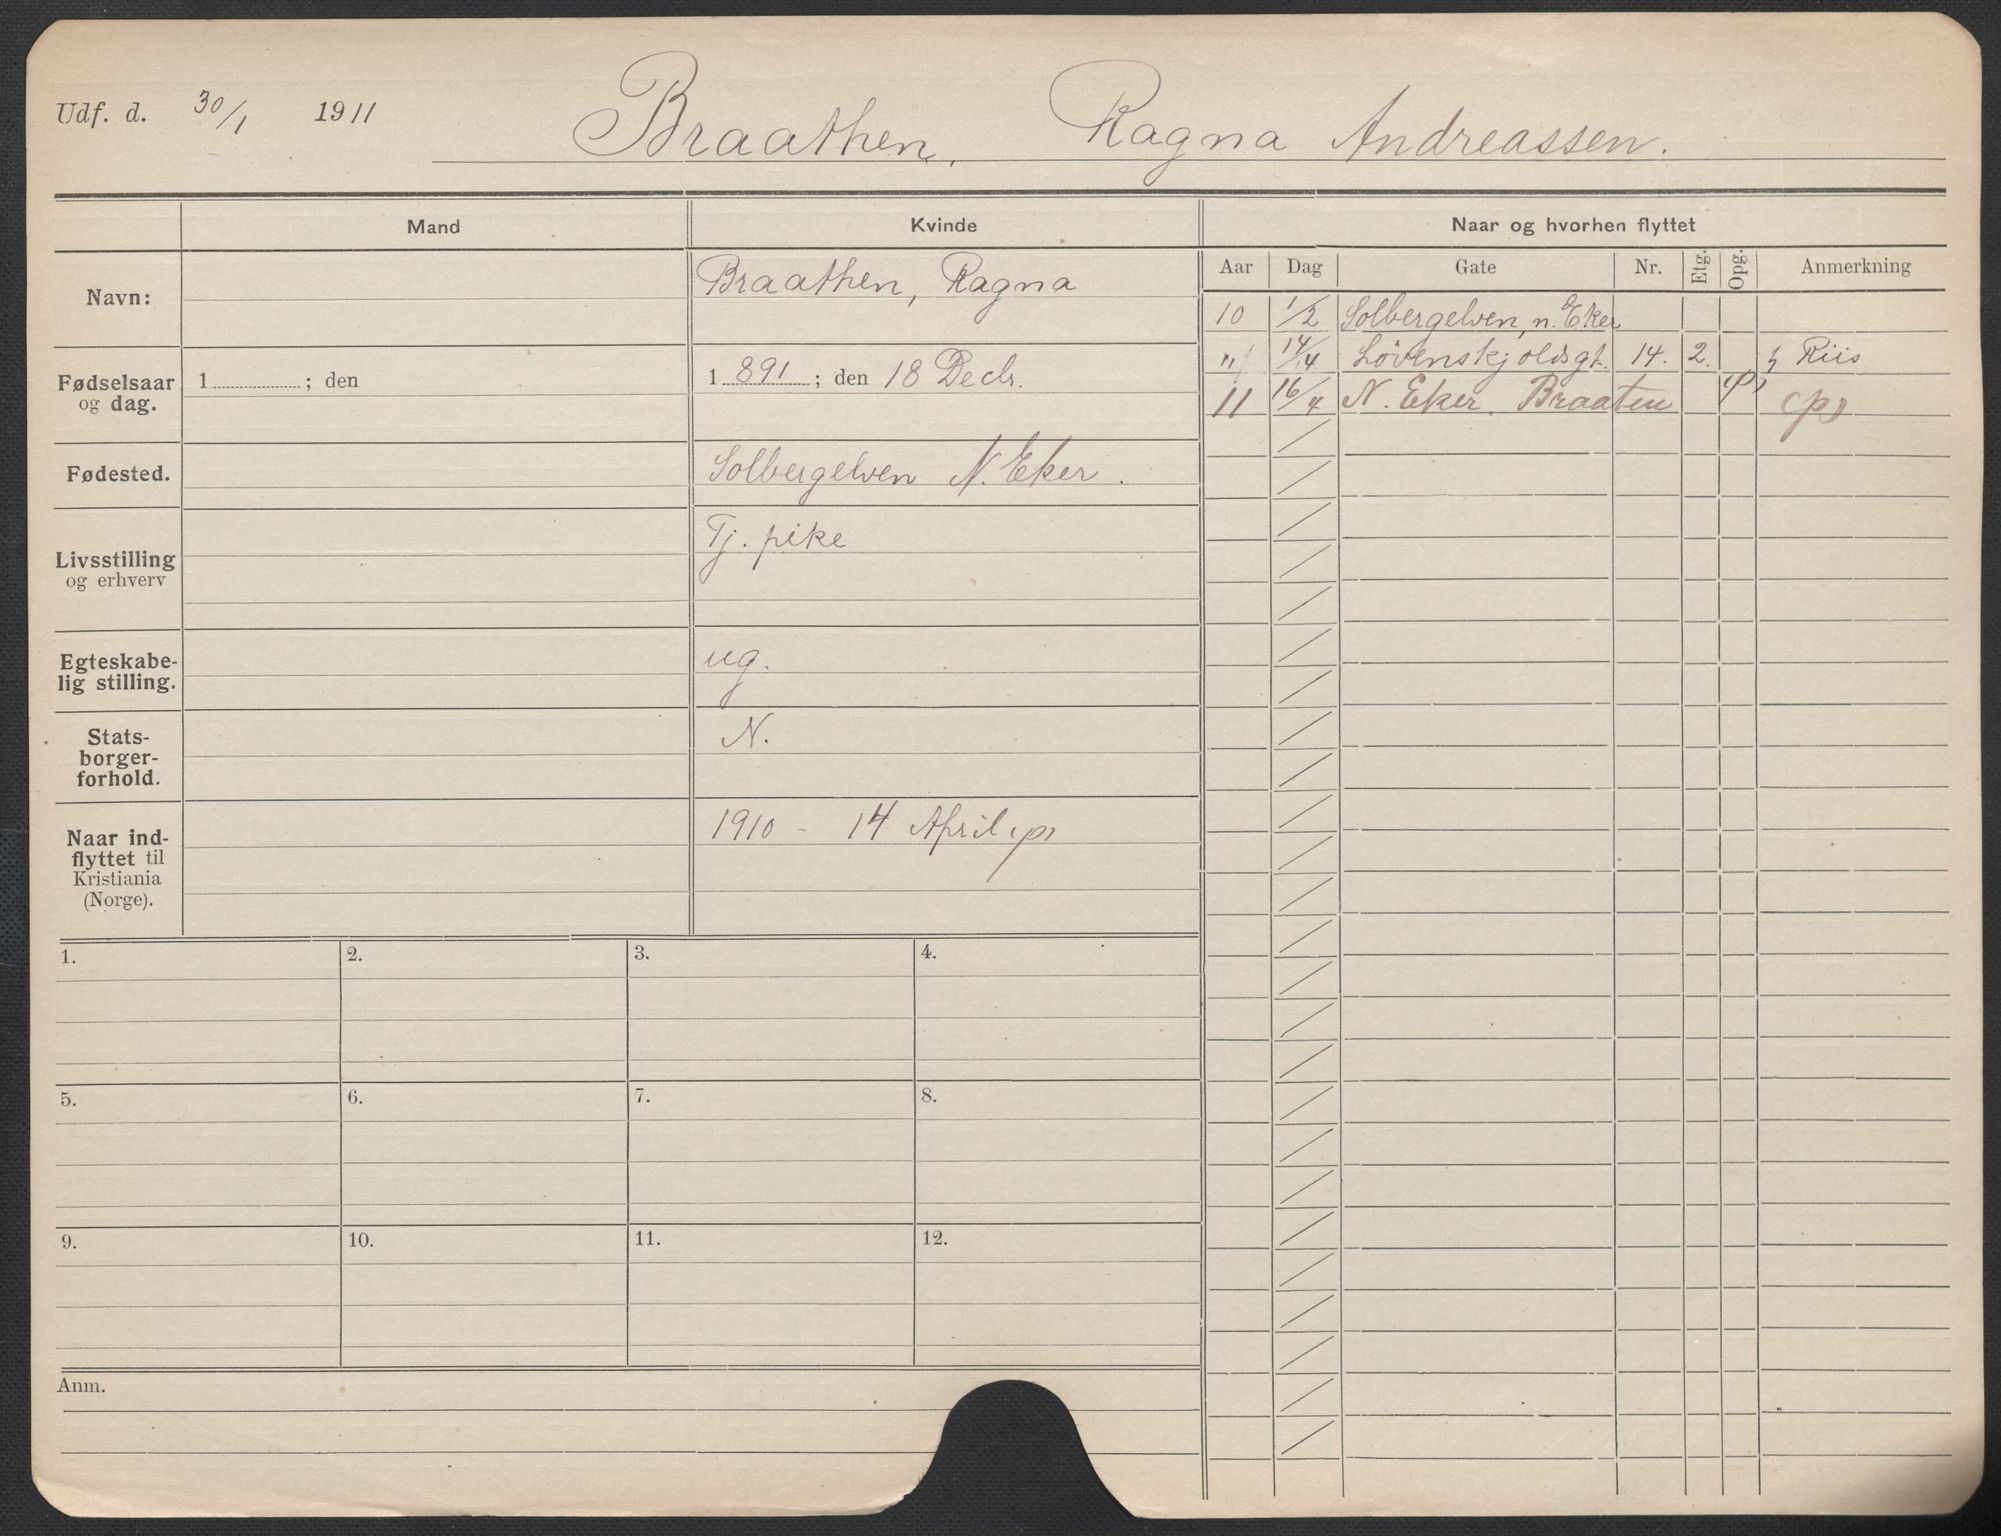 Udf. d. 30/1 1911 Braathen, Ragna Andreassen.
Mand Kvinde Naar og hvorhen flyttet
Navn: Braathen, Ragna
Fødselsaar og dag. 1 ; den 1 891 ; den 18 Decbr.
Fødested. Solbergelven N. Eker.
Livsstilling og erhverv Tj. pike
Egteskabe-
lig stilling. ug.
Stats-
borger-
forhold. N.
Naar ind-
flyttet til
Kristiania
(Norge). 1910 - 14 April (p)
Aar Dag Gate Nr. Etg. Opg. Anmerkning
10 1/2 Solbergelven, n. Eker
" 14/4 Løvenskjoldsgt. 14. 2. Riis
11 16/4 N. Eker. Braaten (p)
1. 2. 3. 4.
5. 6. 7. 8.
9. 10. 11. 12.
Anm.